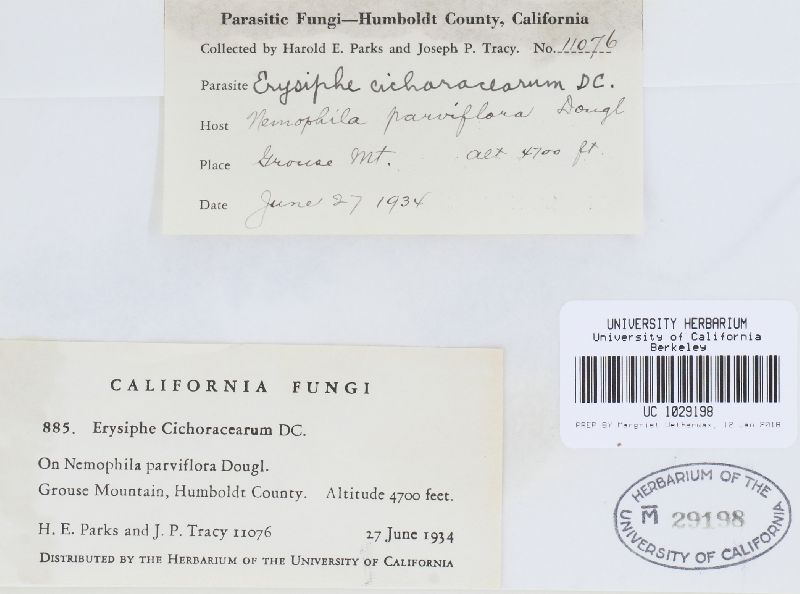 Parasitic Fungi—Humboldt County, California
Collected by Harold E. Parks and Joseph P. Tracy. No. 11076
Parasite Erysiphe cichoracearum DC.
Host Nemophila parviflora Dougl
Place Grouse Mt. alt 4700 ft.
Date June 27 1934
UNIVERSITY HERBARIUM
University of California
Berkeley
UC 1029198
PREP BY Margriet Wetherwax, 12 Jan 2018
CALIFORNIA FUNGI
885. Erysiphe Cichoracearum DC.
On Nemophila parviflora Dougl.
Grouse Mountain, Humboldt County. Altitude 4700 feet.
H. E. Parks and J. P. Tracy 11076 27 June 1934
DISTRIBUTED BY THE HERBARIUM OF THE UNIVERSITY OF CALIFORNIA
HERBARIUM OF THE
M 29198
UNIVERSITY OF CALIFORNIA